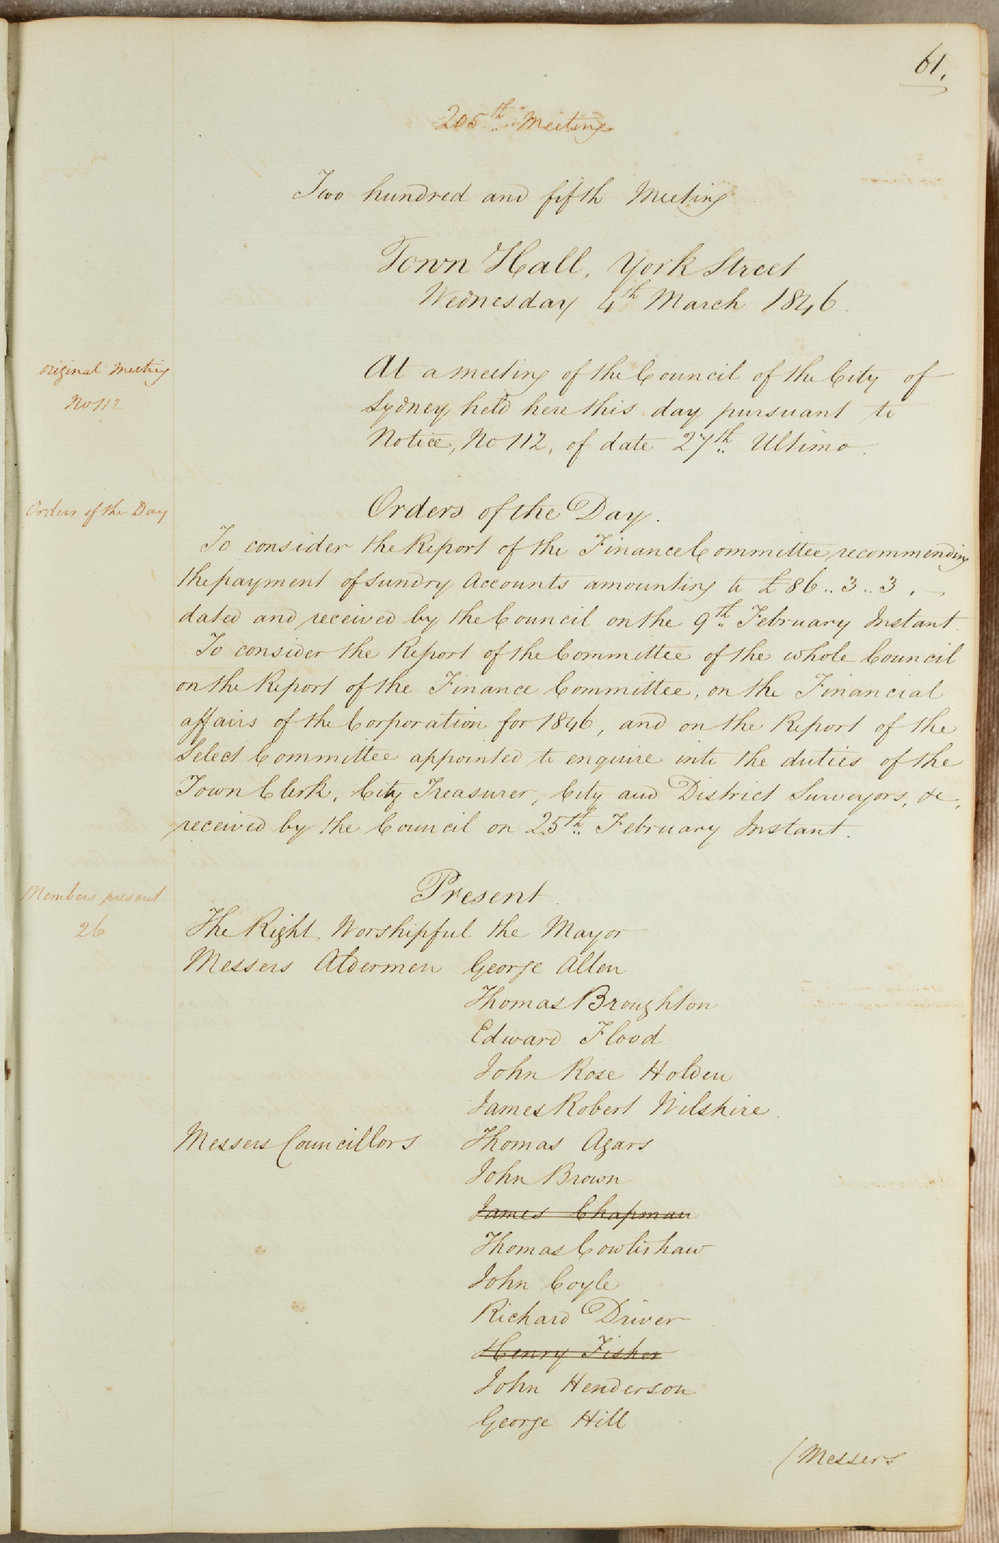 61.
205th Meeting
Two hundred and fifth Meeting
Town Hall, York Street
Wednesday 4th March 1846.
original Meeting
No 112
At a meeting of the Council of the City of
Sydney held here this day pursuant to
Notice, No 112, of date 27th Ultimo.
Orders of the Day
Orders of the Day.
To consider the Report of the Finance Committee recommending
the payment of sundry Accounts amounting to £86..3..3.
dated and received by the Council on the 9th February Instant.
To consider the Report of the Committee of the whole Council
on the Report of the Finance Committee, on the Financial
affairs of the Corporation for 1846, and on the Report of the
Select Committee appointed to enquire into the duties of the
Town Clerk, City Treasurer, City and District Surveyors, &c,
received by the Council on 25th February Instant.
Members present
26
Present.
The Right Worshipful the Mayor
Messers Aldermen George Allen
Thomas Broughton
Edward Flood
John Rose Holden
James Robert Wilshire.
Messers Councillors Thomas Agars
John Brown
James Chapman
Thomas Cowlishaw
John Coyle
Richard Driver
Henry Fisher
John Henderson
George Hill
(Messers